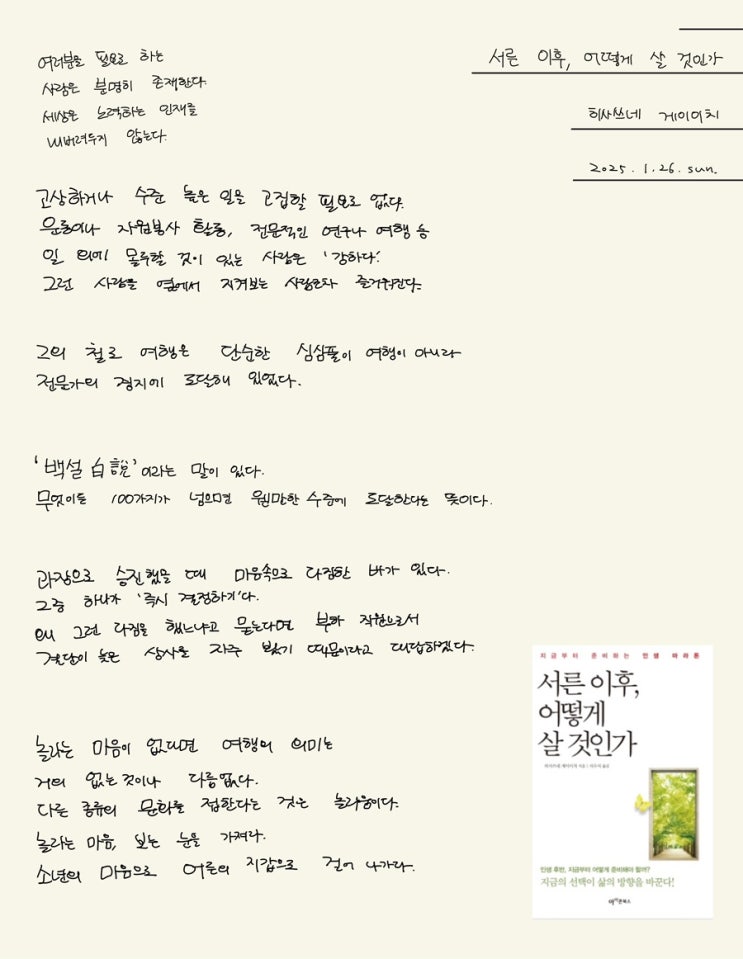 서른 이후, 어떻게 살 것인가
히사쓰네 게이이치
2025. 1. 26. sun.
여러분을 필요로 하는
사람은 분명히 존재한다.
세상은 노력하는 인재를
내버려두지 않는다.
고상하거나 수준 높은 일을 고집할 필요로 없다.
운동이나 자원봉사 활동, 전문적인 연구나 여행 등
일 외에 몰두할 것이 있는 사람은 '강하다.'
그런 사람을 옆에서 지켜보는 사람은 즐거워진다.
그의 철로 여행은 단순한 심심풀이 여행이 아니라
전문가의 경지에 도달해 있었다.
'백설 白說'이라는 말이 있다.
무엇이든 100가지가 넘으면 웬만한 수준에 도달한다는 뜻이다.
과장으로 승진했을 때 마음속으로 다짐한 바가 있다.
그중 하나가 '즉시 결정하기'다.
왜 그런 다짐을 했느냐고 묻는다면 부하 직원으로서
결단이 늦은 상사를 자주 봤기 때문이라고 대답하겠다.
놀라는 마음이 없다면 여행의 의미는
거의 없는 것이나 다름없다.
다른 종류의 문화를 접한다는 것은 놀라움이다.
놀라는 마음, 보는 눈을 가져라.
소년의 마음으로 어른의 지갑으로 걸어 나가라.
지금부터 준비하는 인생 마라톤
서른 이후,
어떻게
살 것인가
히사쓰네 게이이치 지음
인생 후반, 지금부터 어떻게 준비해야 할까?
지금의 선택이 삶의 방향을 바꾼다!